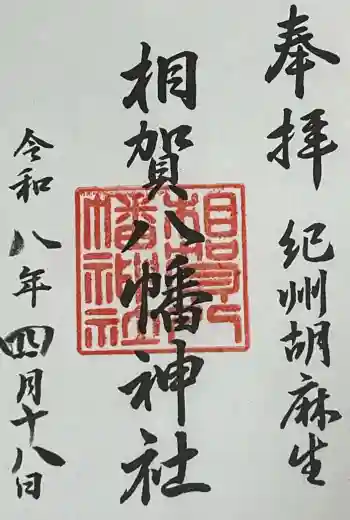 奉拝 紀州胡麻生
相賀八幡神社
相賀八幡神社
令和八年四月十八日